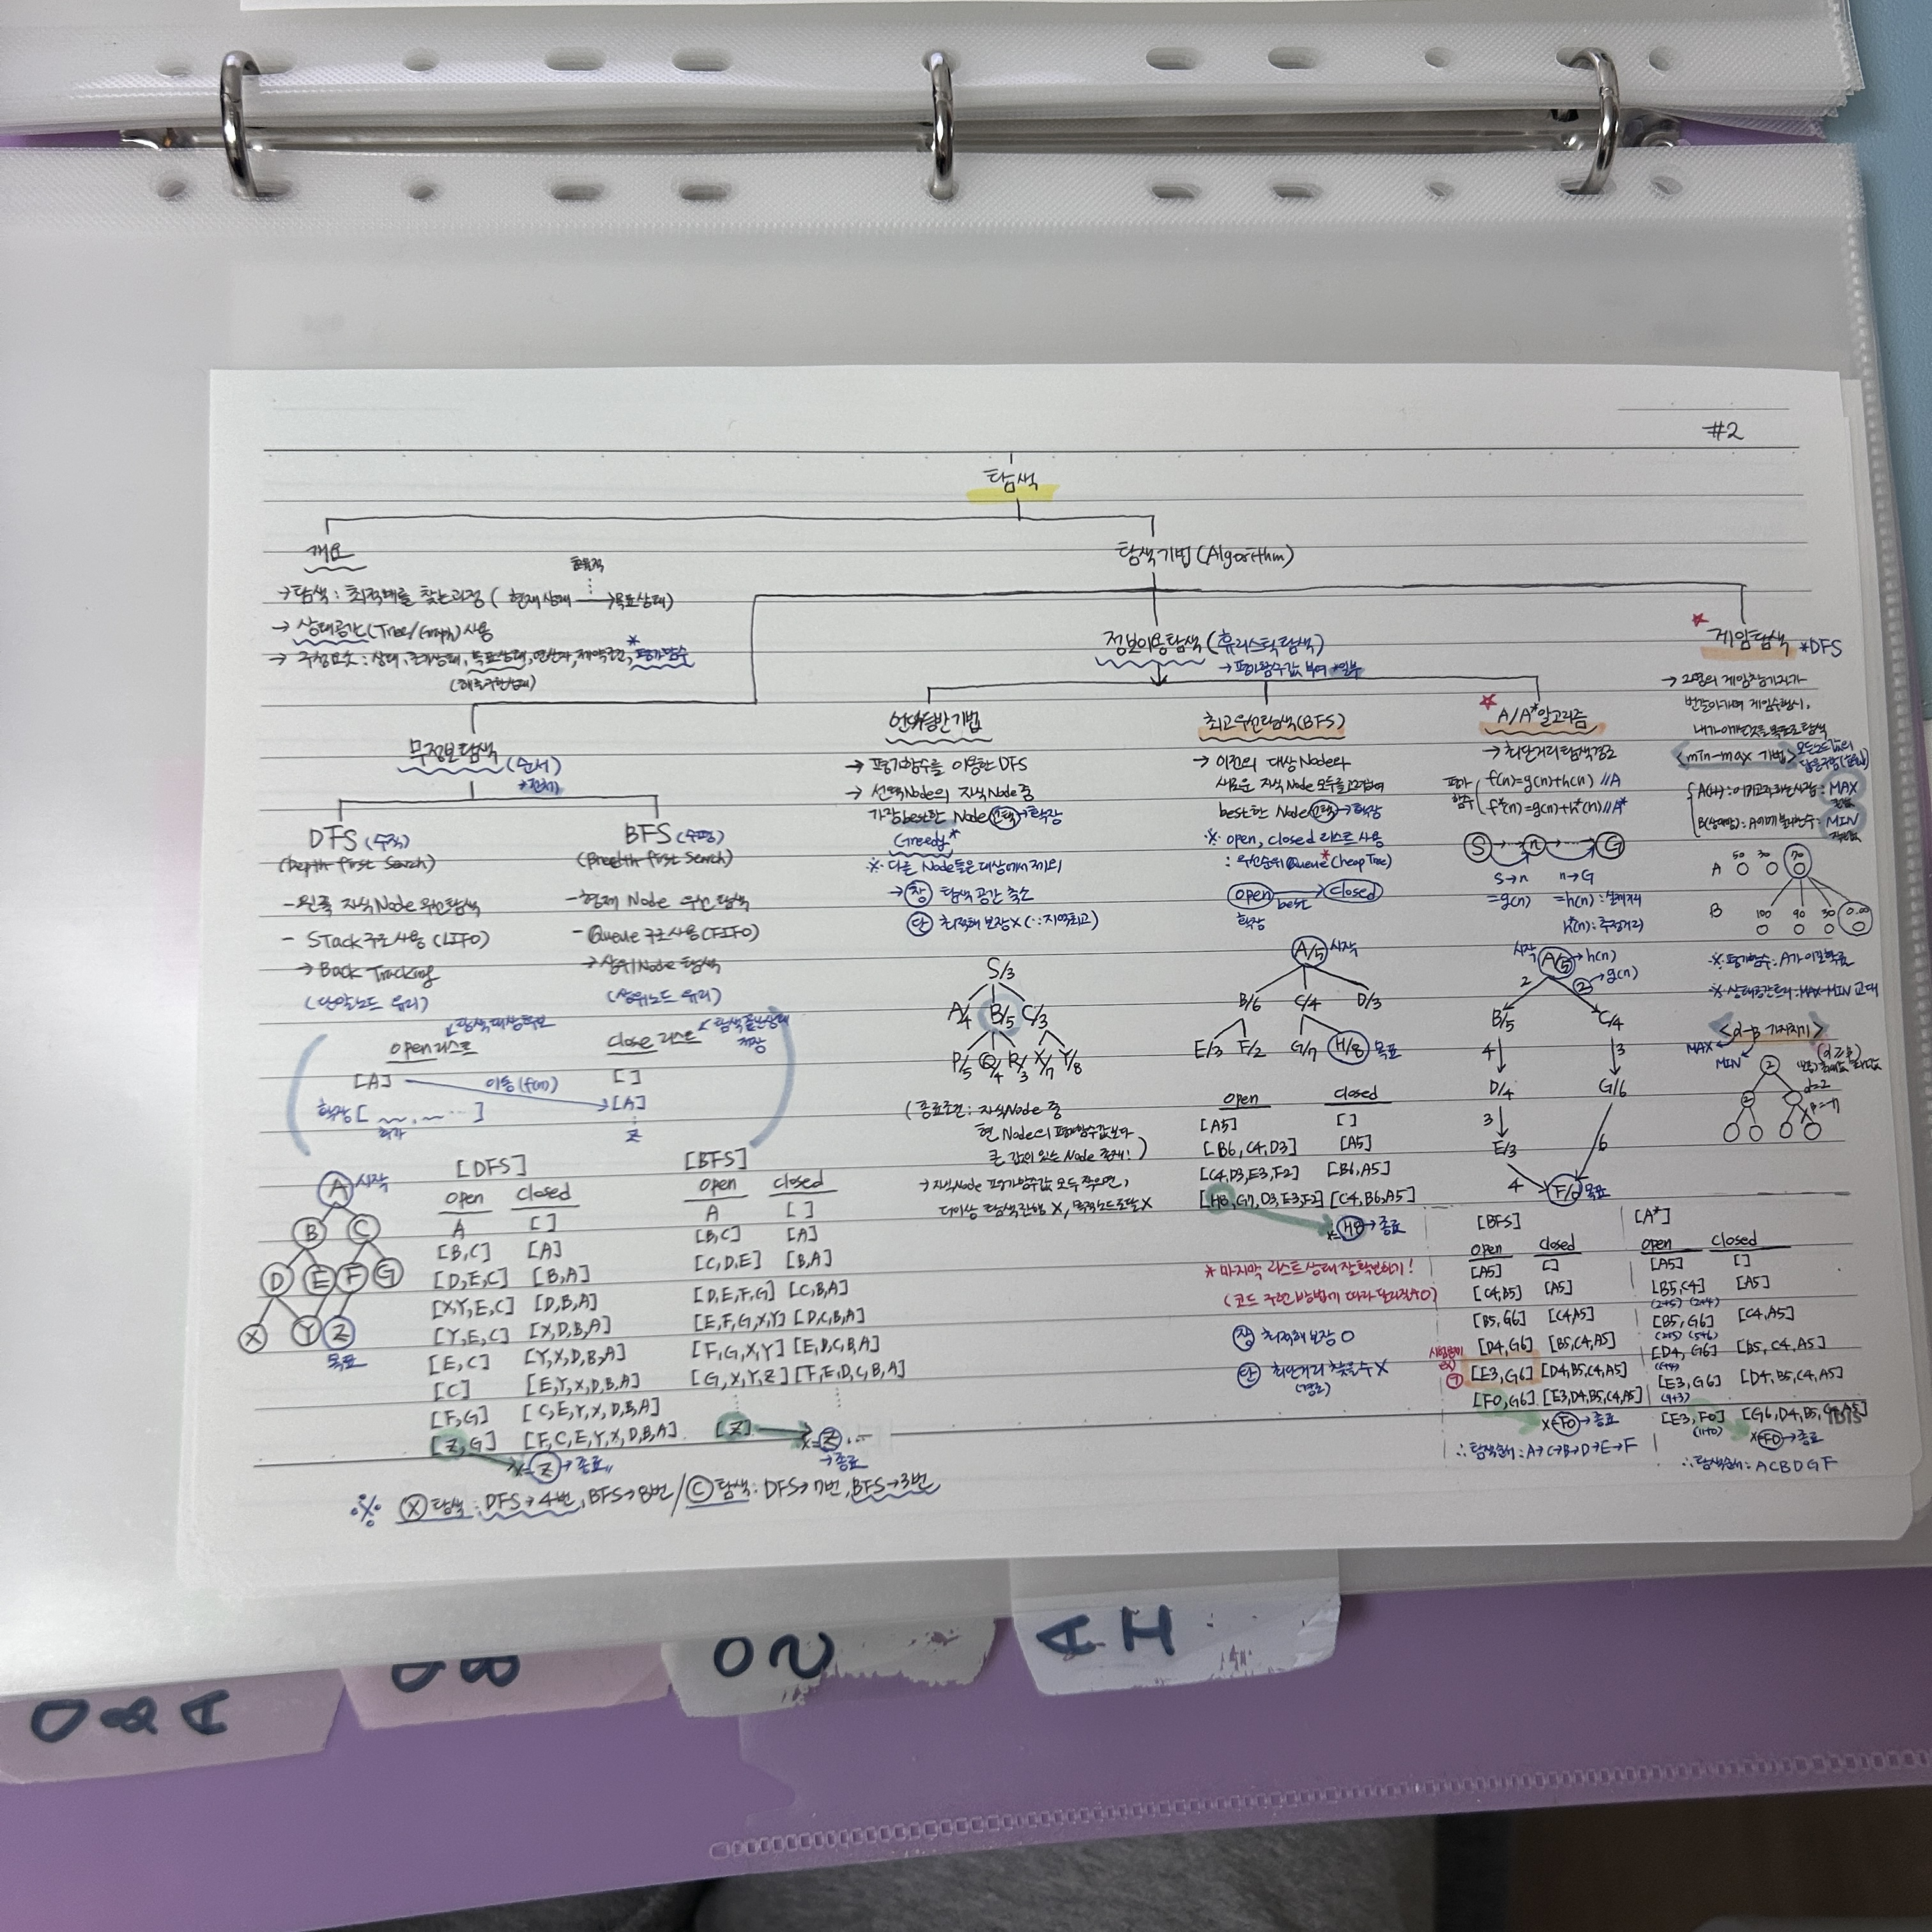 #2
탐색
개요
→ 탐색 : 최적해를 찾는과정 ( 현재상태 → 목표상태)
효율적
→ 상태공간(Tree/Graph)사용
→ 구성요소 : 상태, 초기상태, 목표상태, 연산자, 제약조건, *평가함수
탐색기법(Algorithm)
무정보탐색
(순서)
→전체
DFS (수직)
(Depth first Search)
- 왼쪽 자식Node 우선탐색
- Stack구조사용(LIFO)
→ Back Tracking
(단말노드 유리)
BFS (수평)
(Breadth first Search)
- 현재 Node 우선 탐색
- Queue 구조사용(FIFO)
→ 상위Node 탐색
(상위노드 유리)
open리스트
탐색대상
[A]
이동(f(n))
확장[ ~, ~ … ]
close 리스트
탐색끝난상태 저장
[ ]
[A]
⋮
Z
A 시작
B C
D E F G
X Y Z
목표
[DFS]
open closed
A [ ]
[B,C] [A]
[D,E,C] [B,A]
[X,Y,E,C] [D,B,A]
[Y,E,C] [X,D,B,A]
[E,C] [Y,X,D,B,A]
[C] [E,Y,X,D,B,A]
[F,G] [C,E,Y,X,D,B,A]
[Z,G] [F,C,E,Y,X,D,B,A]
x=Z→종료
[BFS]
open closed
A [ ]
[B,C] [A]
[C,D,E] [B,A]
[D,E,F,G] [C,B,A]
[E,F,G,X,Y] [D,C,B,A]
[F,G,X,Y] [E,D,C,B,A]
[G,X,Y,Z] [F,E,D,C,B,A]
[Z]
x=Z…
→종료
※ X탐색 : DFS→4번, BFS→8번 / C탐색 : DFS→7번, BFS→3번
정보이용탐색(휴리스틱탐색)
→ 평가함수값 부여 *일부
언덕등반기법
→ 평가함수를 이용한 DFS
→ 선택Node의 자식Node 중
가장best한 Node 선택→확장
Greedy*
※ 다른 Node들은 대상에서 제외
→ 장 탐색 공간 축소
단 최적해 보장X (∵지역최고)
S/3
A/4 B/5 C/3
P/5 Q/4 R/3 X/7 Y/8
(종료조건 : 자식Node 중
현 Node의 평가함수값보다
큰 값이 있는 Node 존재! )
→ 자식Node 평가함수값 모두 작으면,
더이상 탐색진행 X, 목적노드도달X
최고우선탐색(BFS)
→ 이전의 대상 Node와
새로운 자식 Node 모두를
best한 Node 선택→확장
※ open, closed 리스트 사용
: 우선순위 Queue*(heap Tree)
open → closed
best
확장
A/5 시작
B/6 C/4 D/3
E/3 F/2 G/7 H/8 목표
open closed
[A5] [ ]
[B6,C4,D3] [A5]
[C4,D3,E3,F2] [B6,A5]
[H8,G7,D3,E3,F2] [C4,B6,A5]
x=H8→종료
* 마지막 리스트상태 잘확인하기!
장 최적해 보장 O
단 최단거리 찾을수X
(경로)
A/A*알고리즘
→ 최단거리탐색경로
평가함수
f(n)=g(n)+h(n) //A
f*(n)=g(n)+h*(n)//A*
S n G
S→n n→G
=g(n) =h(n) : 실제거리
h*(n) : 추정거리
시작 A/5 → h(n)
2 ② → g(n)
B/5 C/4
4 3
D/4 G/6
3
E/3 6
4 F/0 목표
[BFS]
open closed
[A5] []
[C4,B5] [A5]
[B5,G6] [C4,A5]
[D4,G6] [B5,C4,A5]
[E3,G6] [D4,B5,C4,A5]
[F0,G6] [E3,D4,B5,C4,A5]
x=F0→종료
∴탐색순서 : A→C→B→D→E→F
[A*]
open closed
[A5] []
[B5,C4] [A5]
(2+5) (2+4)
[B5,G6] [C4,A5]
(2+5) (5+6)
[D4,G6] [B5,C4,A5]
(6+4)
[E3,G6] [D4,B5,C4,A5]
(9+3)
[E3,F0] [G6,D4,B5,C4,A5]
(11+0)
x=F0→종료
∴탐색순서 : ACBDGF
게임탐색 *DFS
→ 2명의 게임참가자가
번갈아가며 게임수행시,
<min-max 기법>
A(나) : 이기고자하는사람 : MAX
MIN
A 50 30 70
B 100 90 30 0.00
※ 평가함수 : A가 이길확률
※ 상태공간트리 : MAX-MIN 교대
<α-β 가지치기>
MAX MIN
(α≥β)
2
α=2
2
Q&A
DB
OS
AI